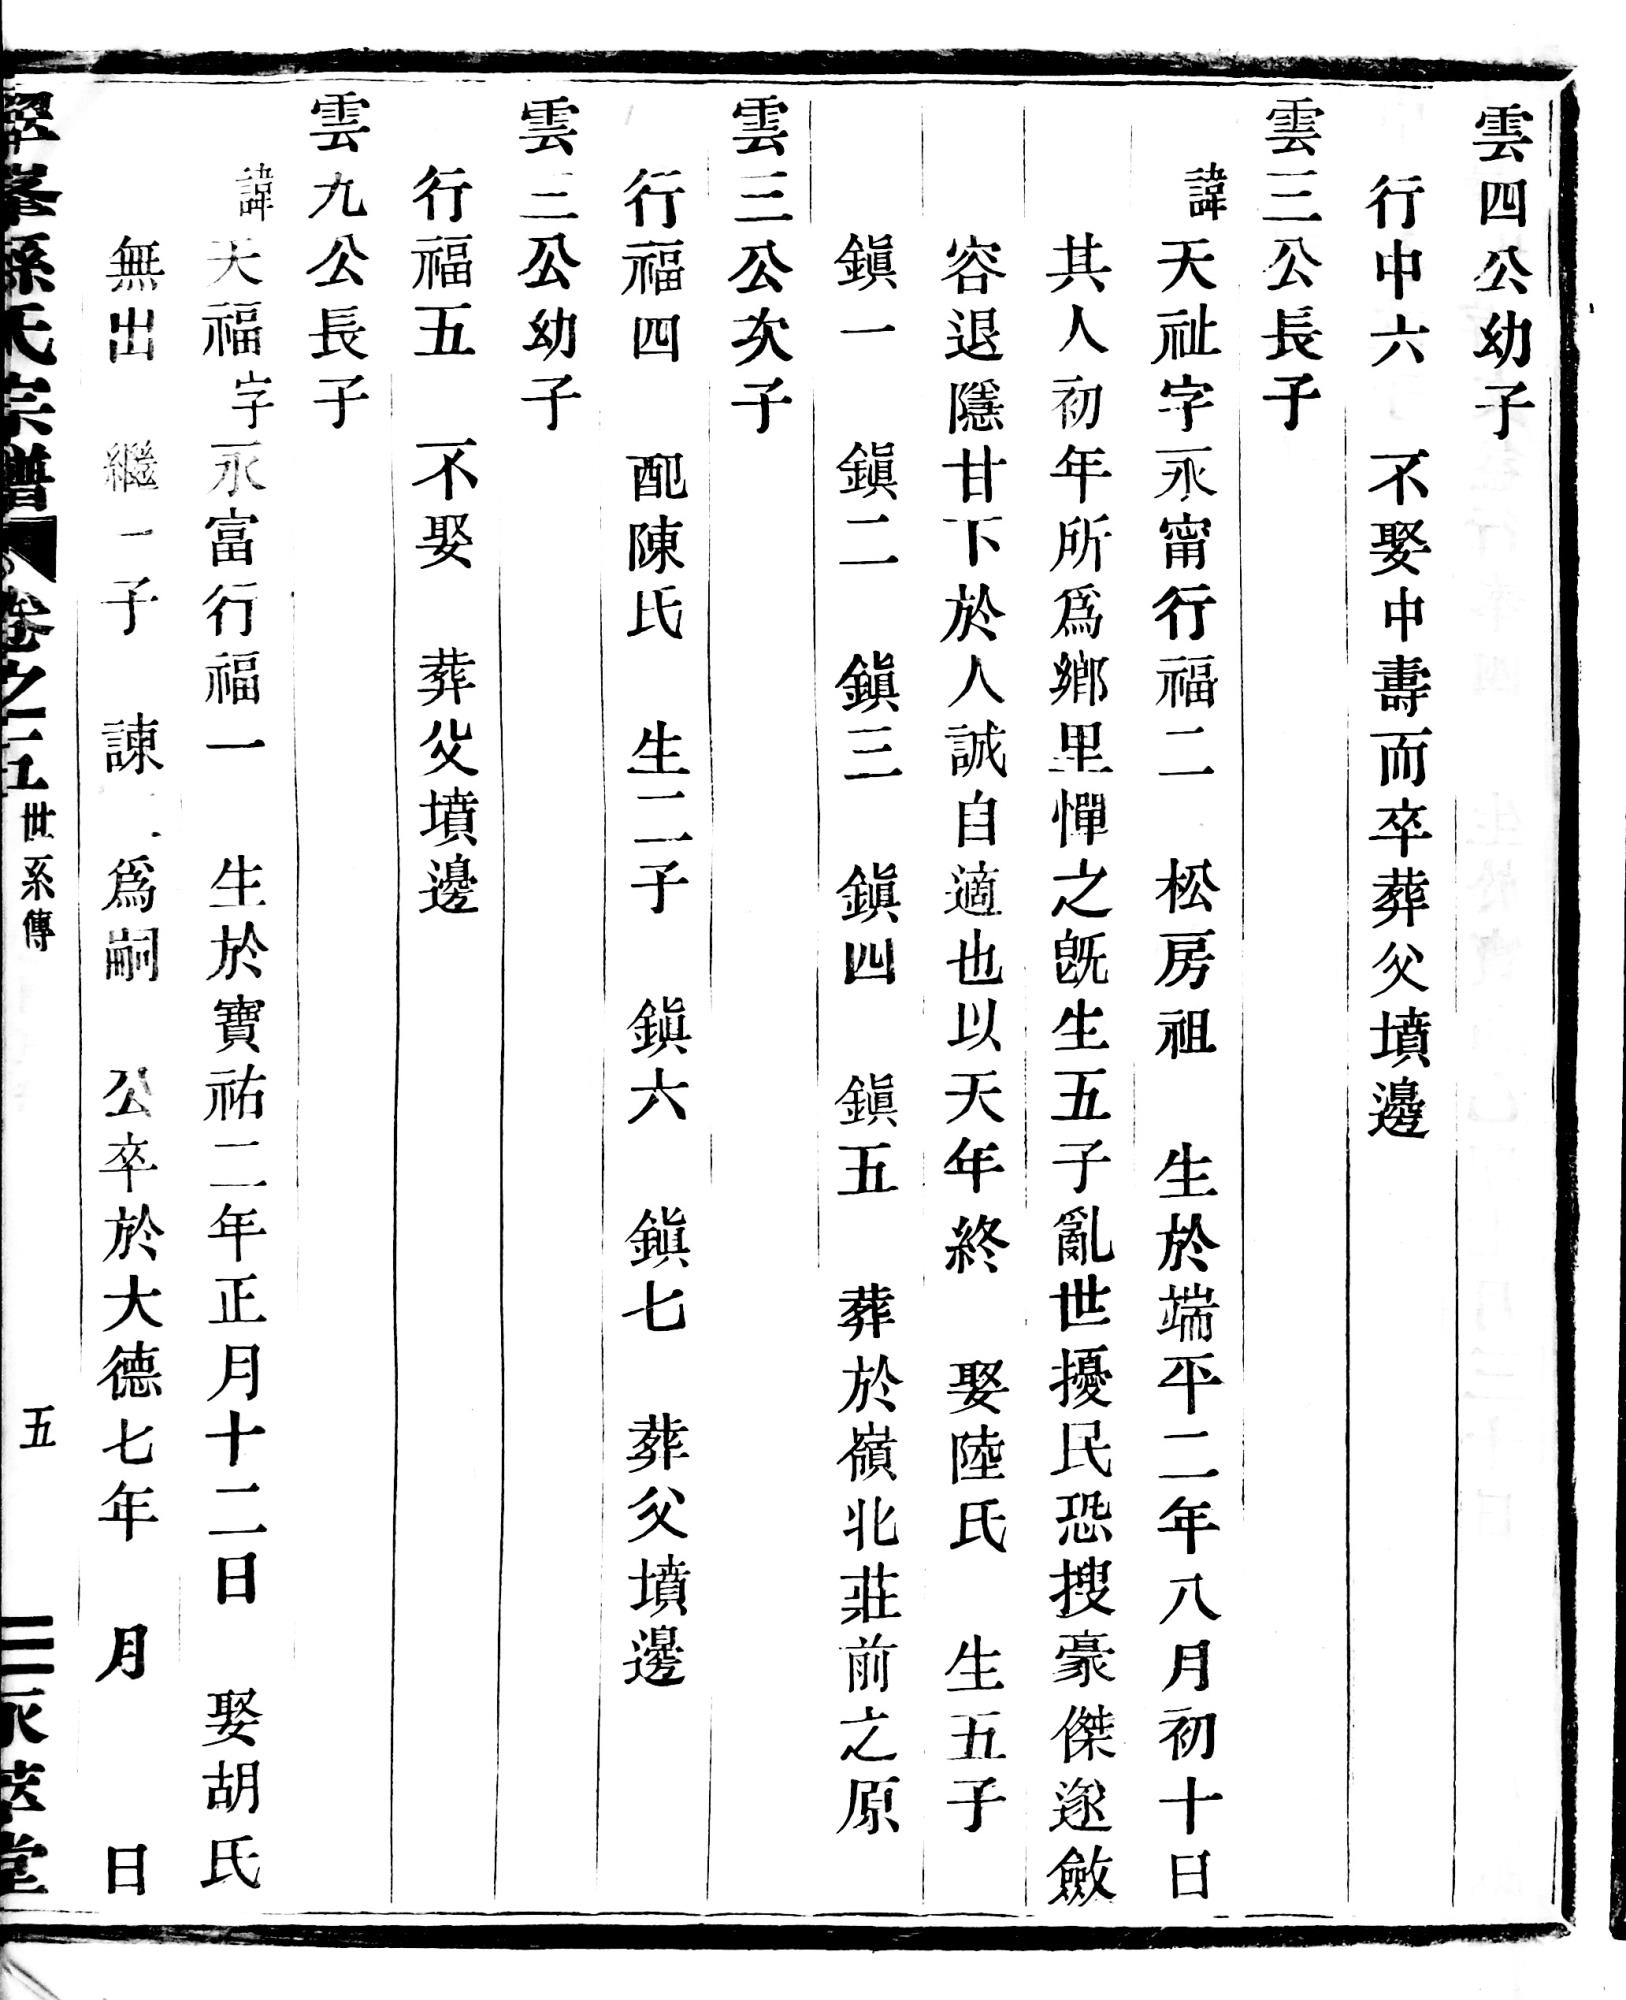 雲四公幼子
行中六　不娶中壽而卒葬父墳邊
雲三公長子
諱天祉字永甯行福二　松房祖　生於端平二年八月初十日
其人初年所爲鄉里憚之旣生五子亂世擾民恐搜豪傑遂斂
容退隱甘下於人誠自適也以天年終　娶陸氏　生五子
鎭一　鎭二　鎭三　鎭四　鎭五　葬於嶺北莊前之原
雲三公次子
行福四　配陳氏　生二子　鎭六　鎭七　葬父墳邊
雲三公幼子
行福五　不娶　葬父墳邊
雲九公長子
諱天福字永富行福一　生於寶祐二年正月十二日　娶胡氏
無出　繼一子　諫一爲嗣　公卒於大德七年　月　日
孫氏宗譜　卷之五　世系傳　五　永萃堂